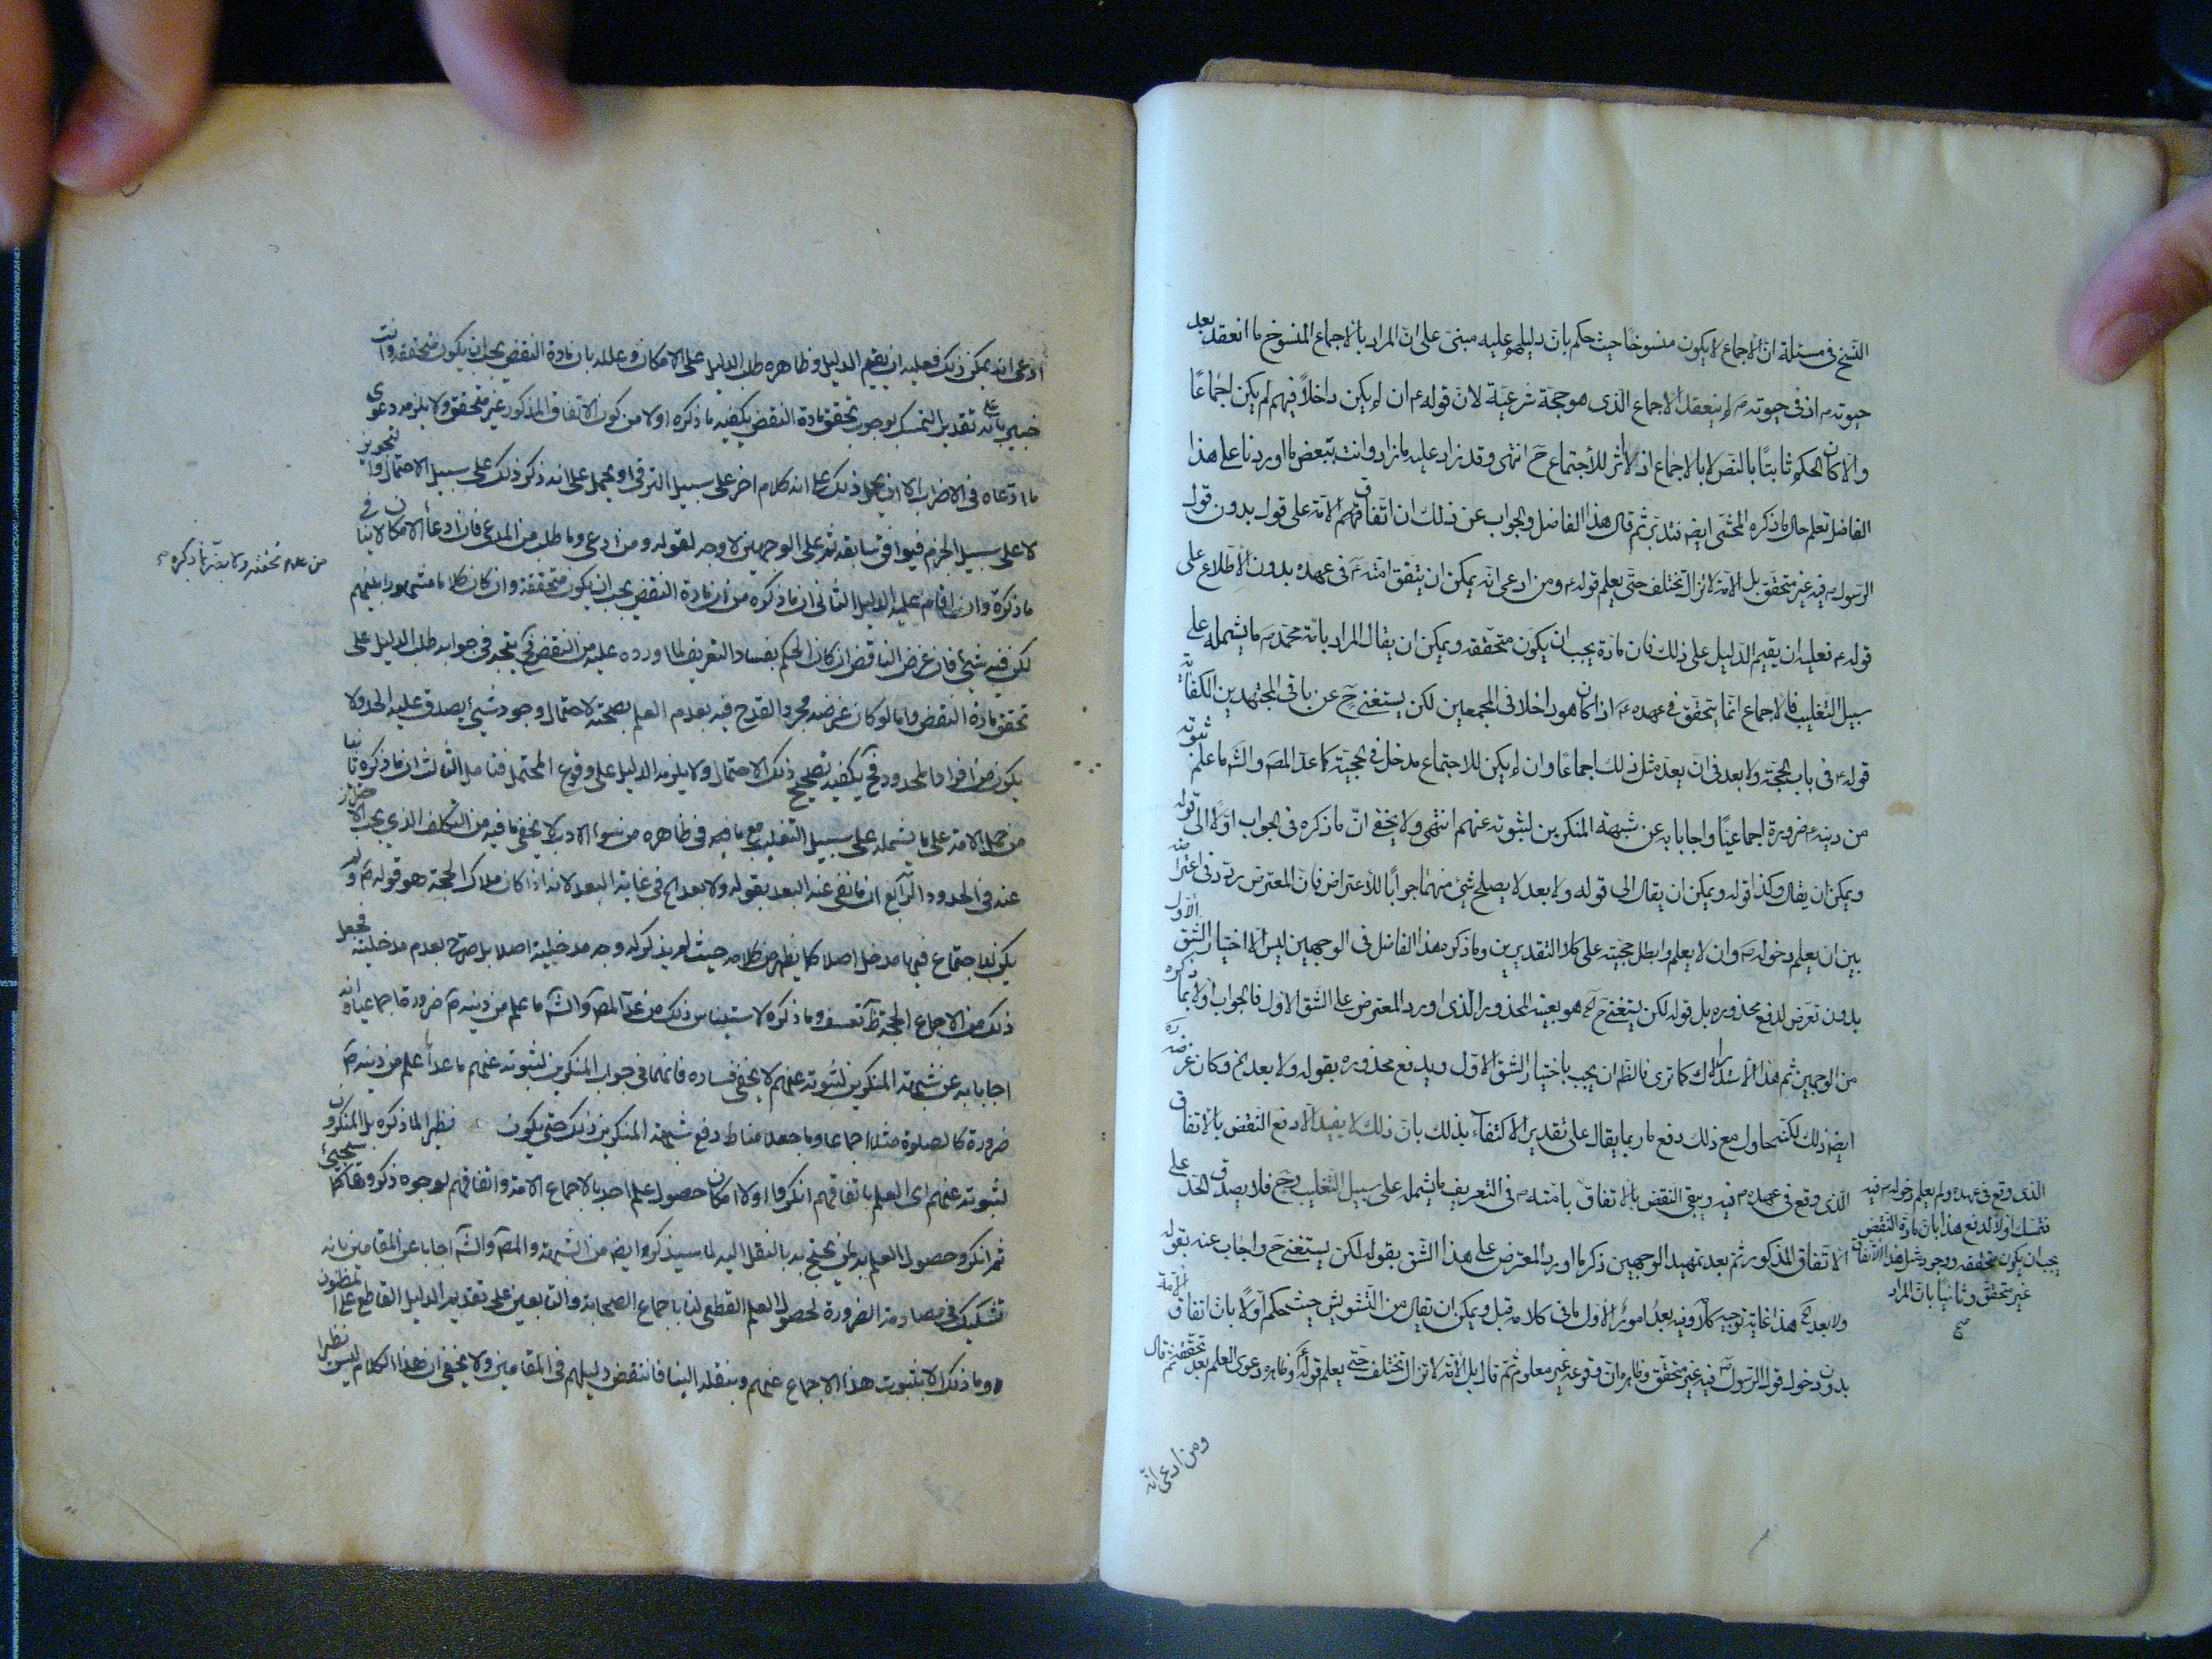 النسخ فى مسئلة ان الاجماع لا يكون منسوخا حيث حكم بان دليلهم عليه مبنى على ان المراد بالاجماع المنسوخ ما انعقد بعد
حيوته ص اذ فى حيوته ص لم ينعقد الاجماع الذى هو حجة شرعية لان قوله ع ان لم يكن داخلا فيهم لم يكن اجماعا
والا كان الحكم ثابتا بالنص لا بالاجماع اذ لا اثر للاجتماع ح انتهى وقد زاد عليه ما زاد وانت بتبعض ما اوردنا على هذا
الفاضل تعلم حال ما ذكره المحشى ايضا فتدبر ثم قال هذا الفاضل والجواب عن ذلك ان اتفاقهم الامة على قول بدون قول
الرسول ص فيه غير متحقق بل الامة لا تزال تختلف حتى يعلم قوله ع ومن ادعى انه يمكن ان يتفق امته ص فى عهده بدون الاطلاع على
قوله ع فعليه ان يقيم الدليل على ذلك فان مادة يجب ان يكون متحققه ويمكن ان يقال المراد بامة محمد ص ما يشمله على
سبيل التغليب فالاجماع انما يتحقق فى عهده ص اذا كان هو داخلا فى المجمعين لكن يستغنى ح عن باقى المجتهدين لكفاية
قوله ع فى باب الحجة ولا بعد فى ان يعد مثل ذلك اجماعا وان لم يكن للاجتماع مدخل فى حجيته كما عد المص والش ما علم ثبوته
من دينه ع ضرورة اجماعيا واجابا به عن شبهة المنكرين لثبوته عنهم انتهى ولا يخفى ان ما ذكره فى الجواب اولا الى قوله
ويمكن ان يقال وكذا قوله ويمكن ان يقال الى قوله ولا بعد لا يصلح شئ منهما جوابا للاعتراض فان المعترض ردد فى اعتراضه
بين ان يعلم دخوله ص وان لا يعلم وابطل حجيته على كلا التقديرين وما ذكره هذا الفاضل فى الوجهين ليس الا اختيار الشق الاول
بدون تعرض لدفع محذوره بل قوله لكن يستغنى ح الخ هو بعينه المحذور الذى اورد المعترض على الشق الاول فالجواب اولا بما ذكره
من الوجهين ثم هذا الاستدراك كما ترى فالظ ان يجيب باختيار الشق الاول ويدفع محذوره بقوله ولا بعد الخ وكان غرضه
ايضا ذلك لكنه حاول مع ذلك دفع ما ربما يقال على تقدير الاكتفاء بذلك بان ذلك لا يفيد الا دفع النقض بالاتفاق
الذى وقع فى عهده ص فيه ويبقى النقض بالاتفاق بامته ص فى التعريف ما يشمله على سبيل التغليب وح فلا يصدق الحد على
الاتفاق المذكور ثم بعد تمهيد الوجهين ذكر ما اورد المعترض على هذا الشق بقوله لكن يستغنى ح واجاب عنه بقوله
ولا بعد الخ هذا غاية توجيه كلامه وفيه بعد امور الاول ما فى كلامه قبل ويمكن ان يقال من التشويش حيث حكم اولا بان اتفاق الامة
بدون دخول قول الرسول ص فيه غير متحقق وظاهره ان وقوعه غير معلوم ثم قال بل الامة لا تزال تختلف حتى يعلم قوله ع وظاهره دعوى العلم بعدم تحققه ثم قال
ومن ادعى انه
الذى وقع فى عهده ولم يعلم دخوله ص فيه
فتمسك اولا لدفع هذا بان مادة النقض
يجب ان يكون متحققه ووجود مثل هذا الاتفاق
غير متحقق وثانيا بان المراد
صح
ادعى انه يمكن ذلك فعليه ان يقيم الدليل وظاهره طلب الدليل على الامكان وعلله بان مادة النقض يجب ان يكون متحققه وانت
خبير بانه على تقدير التمسك لوجوب تحقق مادة النقض يكفيه ما ذكره اولا من كون الاتفاق المذكور غير متحقق ولا يلزمه دعوى
ما ادعاه فى الاضراب الا ان يحمل ذلك على انه كلام اخر على سبيل الترقى او يحمل على انه ذكر ذلك على سبيل الاحتمال والتجويز
لا على سبيل الجزم فيوافق سابقه ثم على الوجهين لا وجه لقوله ومن ادعى وما طلب من المدعى فان ادعاء الامكان لا ينافى
ما ذكره وان اقام عليه الدليل الثانى ان ما ذكره من ان مادة النقض يجب ان يكون متحققه وان كان كلاما مشهورا بينهم
لكن فيه شئ فان غرض الناقض ان كان الحكم بفساد التعريف لما اورده عليه من النقض فح يتجه فى جوابه طلب الدليل على
تحقق مادة النقض واما لو كان غرضه مجرد القدح فيه بعدم العلم بصحته لاحتمال وجود شئ يصدق عليه الحد ولا
يكون من افراد المحدود فح يكفيه تصحيح ذلك الاحتمال ولا يلزمه الدليل على وقوع المحتمل فتامل الثالث ان ما ذكره ثانيا
من حمل الامة على ما يشمله على سبيل التغليب مع ما فيه فى ظاهره من سوء الادب لا يخفى ما فيه من التكلف الذى يجب الاحتراز
عنه فى الحدود الرابع ان ما نفى عنه البعد بقوله ولا بعد الخ فى غاية البعد لانه اذا كان ملاك الحجة هو قوله ص ولم
يكن للاجتماع فيها مدخل اصلا كما يظهر من كلامه حيث لم يذكر له وجه مدخلية اصلا بل صرح بعدم مدخليته فجعل
ذلك من الاجماع الحجة ظ تعسف وما ذكره لاستيناس ذلك من عد المص والش ما علم من دينه ص ضرورة اجماعيا وانه
اجابا به عن شبهة المنكرين لثبوته عنهم لا يخفى فساده فانهما فى جواب المنكرين لثبوته عنهم ما عدا ما علم من دينه ص
ضرورة كالصلوة مثلا اجماعا وما جعلا مناط دفع شبهة المنكرين ذلك حتى يكون نظيرا لما ذكره بل المنكرون
لثبوته عنهم اى العلم باتفاقهم انكروا اولا امكان حصول علم احد بالاجماع الامة واتفاقهم لوجوه ذكروها كما سيجئ
ثم انكروا حصول العلم به لمن يحتج به بالنقل اليه لما سيذكر وايضا من الشبهة والمص والش اجابا عن المقامين بانه
تشكيك فى مصادمة الضرورة لحصول العلم القطعى لنا باجماع الصحابة والتابعين على تقديم الدليل القاطع على المظنون
وما ذلك الا بثبوت هذا الاجماع عنهم وبنقله الينا فانتقض دليلهم فى المقامين ولا يخفى ان هذا الكلام ليس نظيرا
من عدم تحققه ولا يضر ما ذكره ص